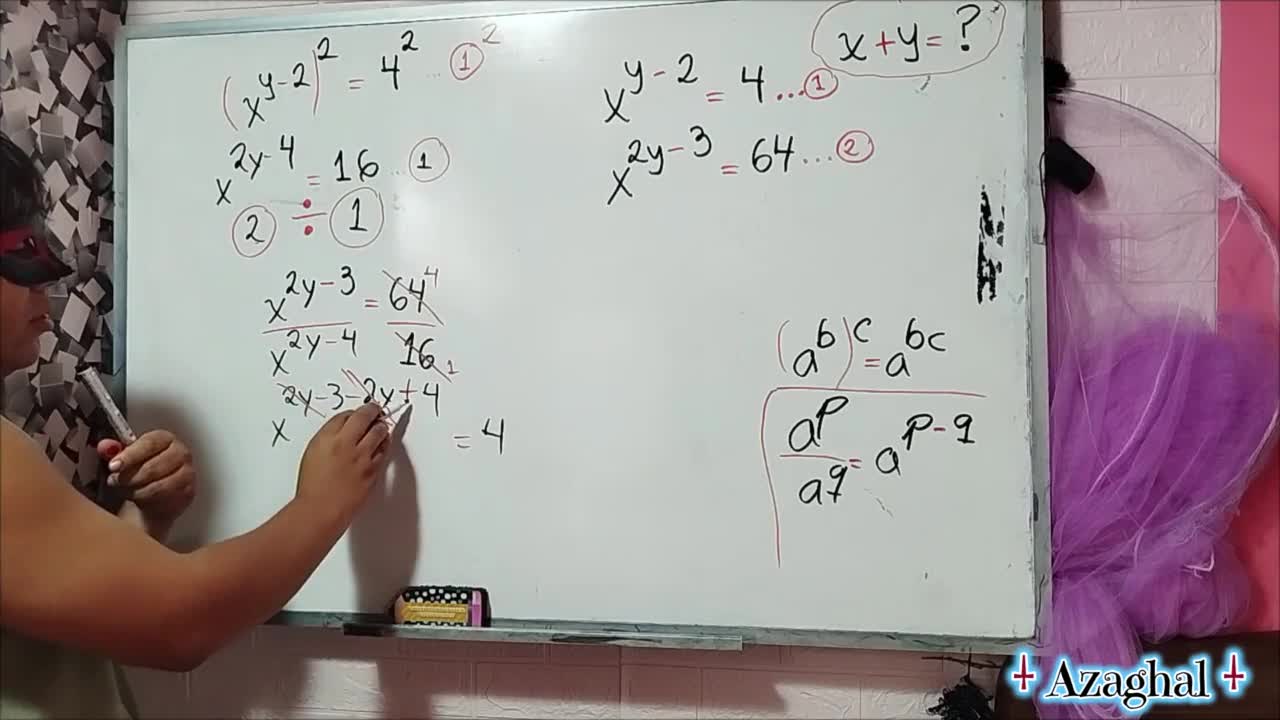 (x^{y-2})^2 = 4^2 ... ①^2
x^{2y-4} = 16 ... ①
② ÷ ①
x^{2y-3} / x^{2y-4} = 64^4 / 16_1
x^{2y-3-2y+4} = 4
x+y=?
x^{y-2} = 4 ... ①
x^{2y-3} = 64 ... ②
(a^b)^c = a^{bc}
a^p / a^q = a^{p-q}
Azaghal